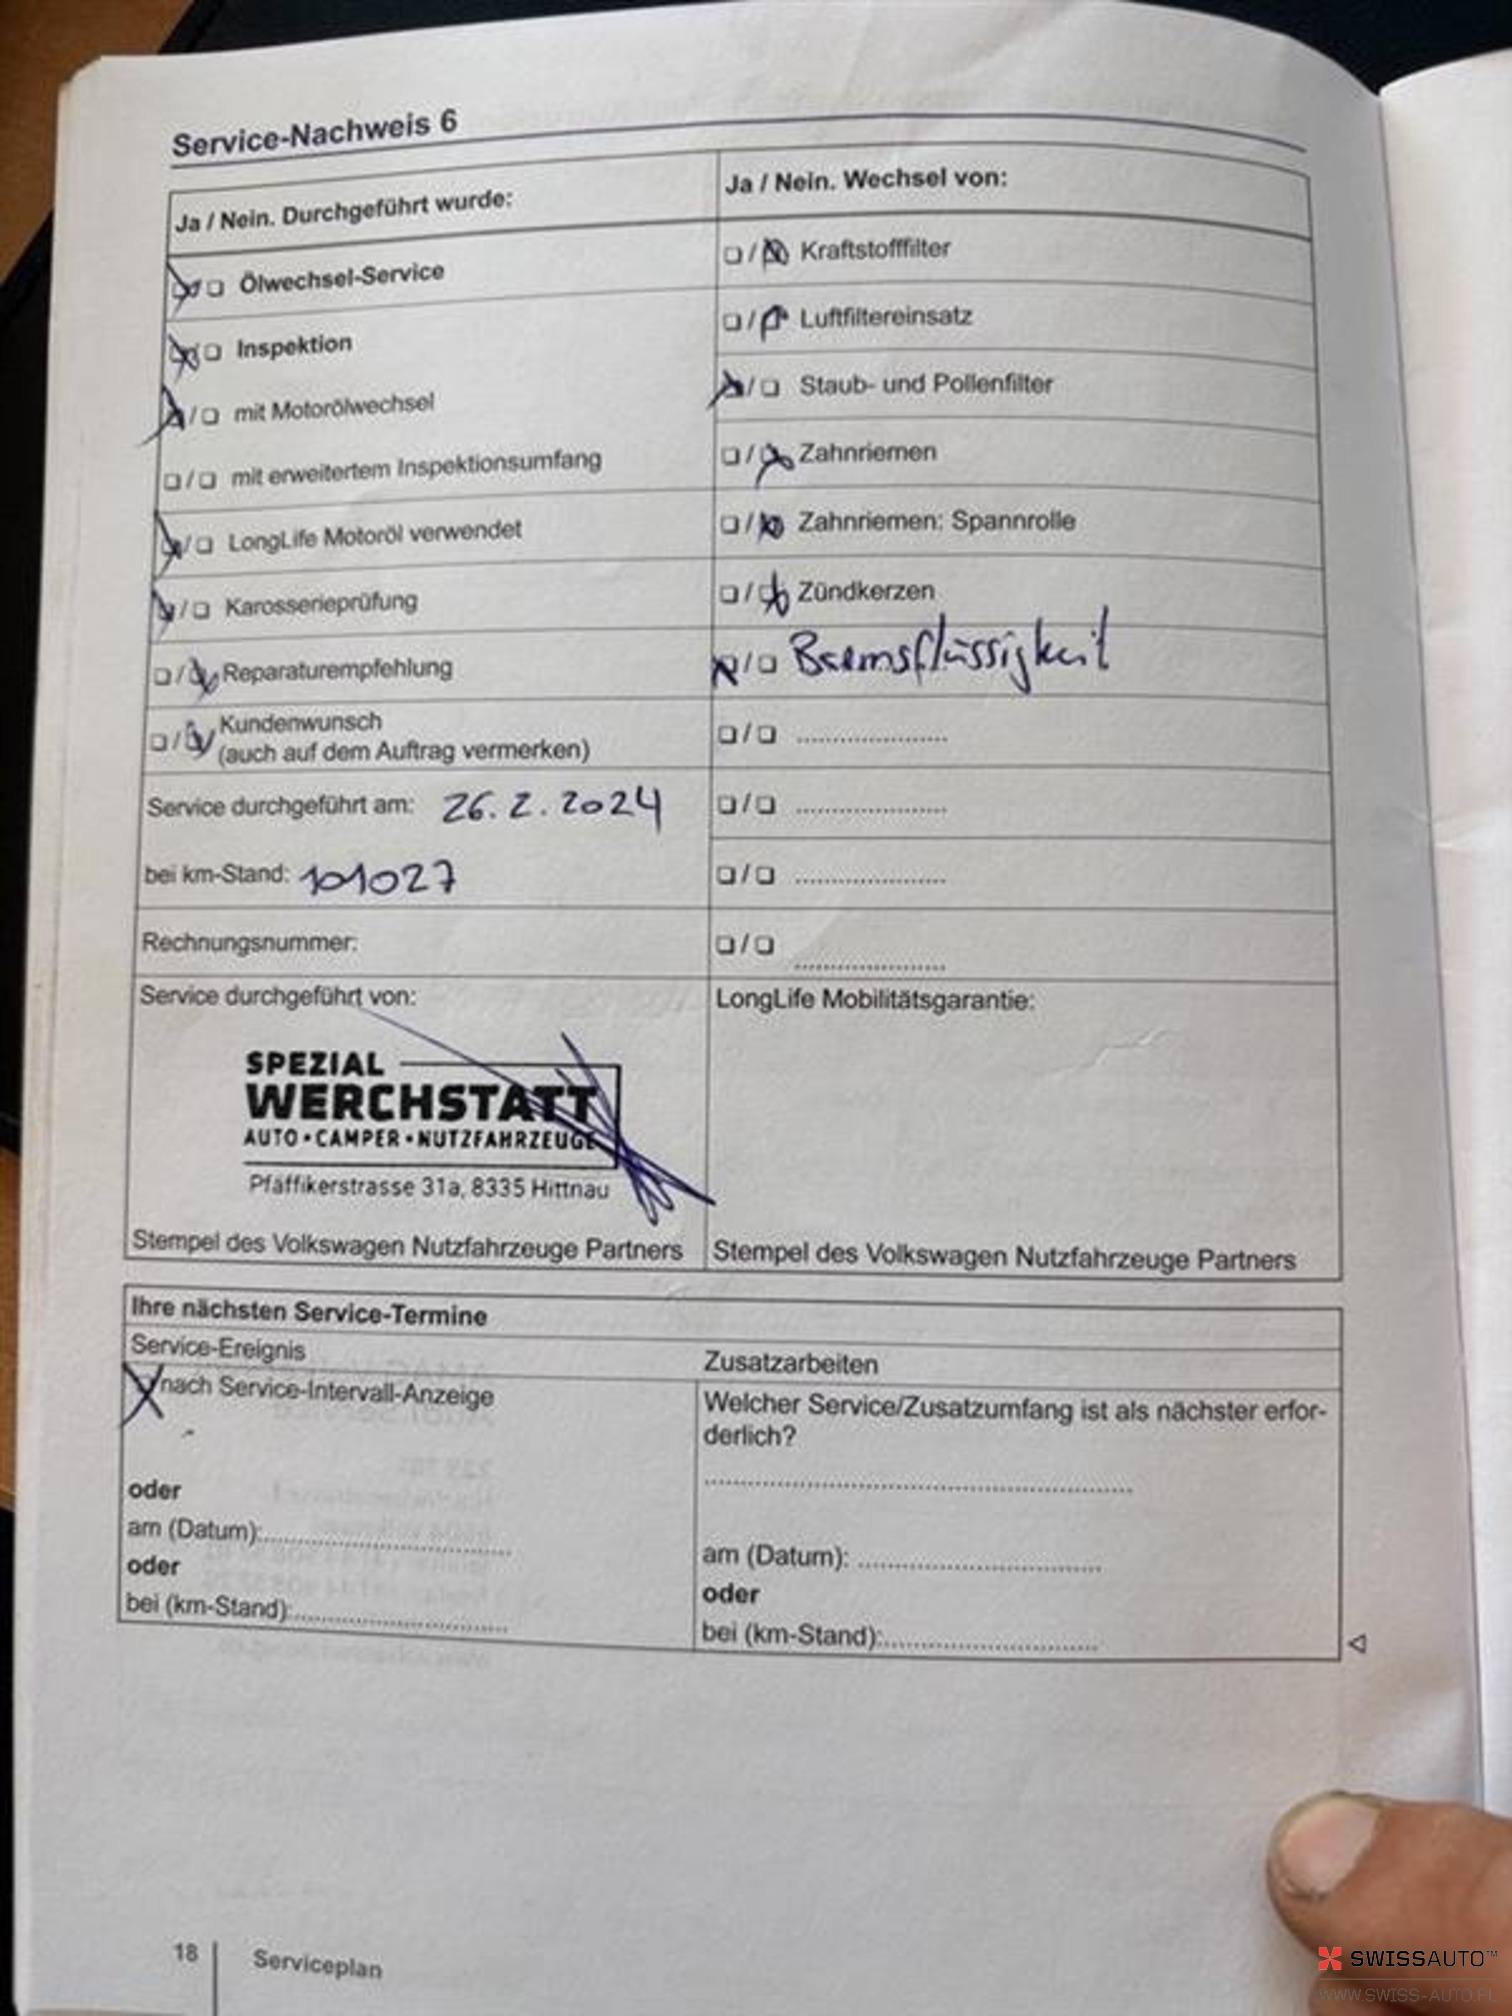 Service-Nachweis 6
Ja / Nein. Durchgeführt wurde:
Ölwechsel-Service
Inspektion
mit Motorölwechsel
mit erweitertem Inspektionsumfang
LongLife Motoröl verwendet
Karosserieprüfung
Reparaturempfehlung
Kundenwunsch
(auch auf dem Auftrag vermerken)
Service durchgeführt am: 26.2.2024
bei km-Stand: 101027
Rechnungsnummer:
Service durchgeführt von:
SPEZIAL
WERCHSTATT
AUTO • CAMPER • NUTZFAHRZEUGE
Pfäffikerstrasse 31a, 8335 Hittnau
Stempel des Volkswagen Nutzfahrzeuge Partners
Ja / Nein. Wechsel von:
Kraftstofffilter
Luftfiltereinsatz
Staub- und Pollenfilter
Zahnriemen
Zahnriemen: Spannrolle
Zündkerzen
Bremsflüssigkeit
LongLife Mobilitätsgarantie:
Stempel des Volkswagen Nutzfahrzeuge Partners
Ihre nächsten Service-Termine
Service-Ereignis
nach Service-Intervall-Anzeige
oder
am (Datum):
oder
bei (km-Stand):
Zusatzarbeiten
Welcher Service/Zusatzumfang ist als nächster erfor-
derlich?
am (Datum):
oder
bei (km-Stand):
18
Serviceplan
SWISSAUTO™
WWW.SWISS-AUTO.PL